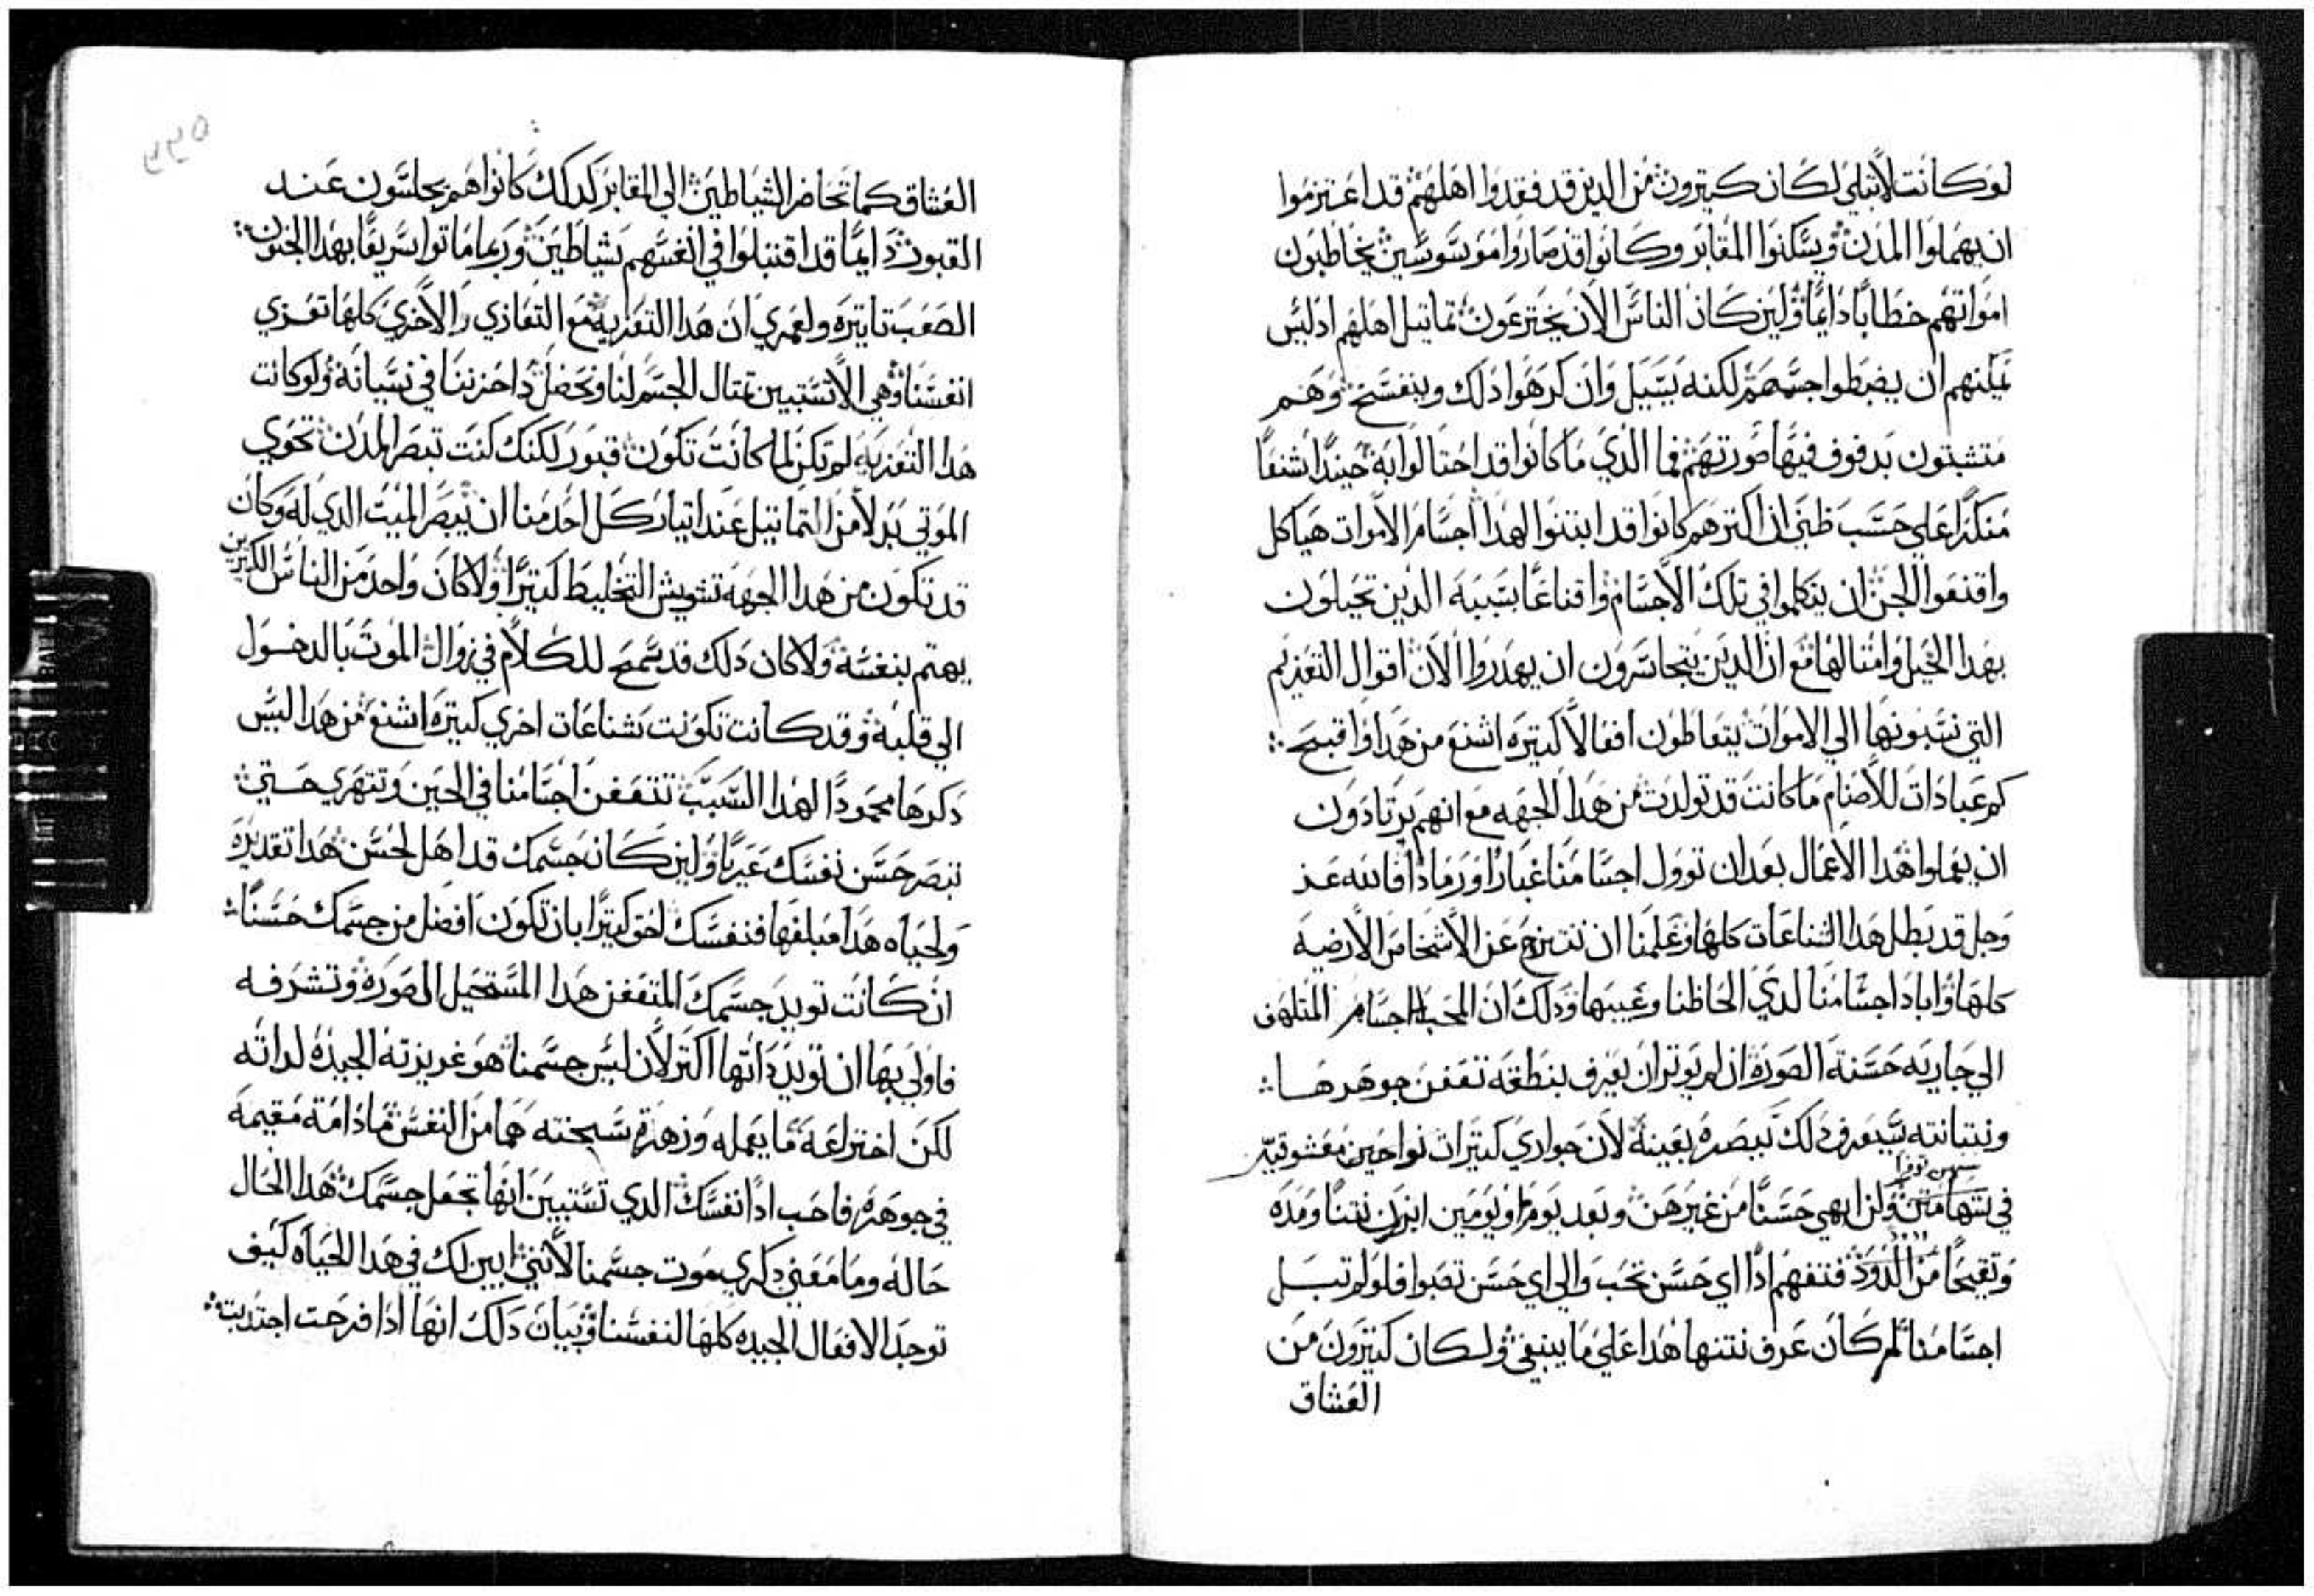 لوكانت لاتبلي لكان كتيرون من الدين قد فقدوا اهلهم قد اعتزموا
ان يهملوا المدن ويسكنوا المقابر وكانوا قد صاروا موسوسين يخاطبون
امواتهم خطابا دايما ولين كان الناس الان يخترعون تماتيل اهلهم ادليس
يمكنهم ان يضبطوا جسمهم لكنه يسيل وان كرهوا دلك وينفسخ وهم
متشبتون بدفوف فيها صورتهم فما الدي ما كانوا قد احتالوا به حينيدا شنعا
منكرا علي حسب ظني ان اكترهم كانوا قد ابتنوا لهدا اجسام الاموات هياكل
واقنعوا الجن ان يتكلموا في تلك الاجسام واقناعا بسببه الدين تحيلون
بهدا الحيل وامتالها مع ان الدين يتجاسرون ان يهدروا الان اقوال التعزيم
التي نسبونها الي الاموات يتعاطون افعالا كتيره اشنع من هدا واقبح
كم عبادات للاصنام ما كانت قد تولدت من هدا الجهه مع انهم يرتادون
ان يعملوا هدا الاعمال بعد ان توول اجسامنا غبارا ورمادا فالله عز
وجل قد بطل هدا الشناعات كلها وعلمنا ان نتنزح عن الاشخاص الارضيه
كلها وابادا جسامنا لدي الحاظنا وغيبها ودلك ان المحب الاجسام المتلهف
الي جاريه حسنة الصوره ان لم يوتر ان يعرف بنطقه تعفن جوهرها
ونتانته سيعرف دلك ببصره بعينه لان جواري كتيرات نواحين معشوقتيه
سهن توفا
في شهامتين ولن ابهي حسنا من غيرهن وبعد يوم او يومين ابرزن نتنا ومده
وتقيحا من الدود فتفهم ادا اي حسن تحب والي اي حسن تصبوا فلو لم تبل
اجسامنا لم كان عرف نتنها هدا علي ما ينبغي ولكان كتيرون من
العشاق
٥٣٣
العشاق كما تحاضر الشياطين الي المقابر كدلك كانوا هم يجلسون عند
القبور دايما قد اقتبلوا في انفسهم شياطين وربما ماتوا سريعا بهدا الجنون
الصعب تاتيره ولعمري ان هدا التعزيه مع التعازي الاخري كلها تعزي
انفسنا وهي الا تستبين تمتال الجسم لنا ونحصل داحزننا في نسيانه ولو كانت
هدا التعزيه لم تكن لما كانت تكون قبور لكنك كنت تبصر المدن تحوي
الموتي بدلا من التماتيل عند اتيار كل احد منا ان يبصر الميت الدي له وكان
قد تكون من هدا الجهه تشويش التخليط كتيرا ولا كان واحد من الناس الكتيرين
يهتم بنفسه ولا كان دلك قد سمح للكلام في زوال الموت بالدخول
الي قلبه وقد كانت تكونت شناعات اخري كتيره اشنع من هدا ليس
دكرها محمودا لهدا السبب تتعفن اجسامنا في الحين وتتهري حتي
تبصر حسن نفسك عيريا ولين كان جسمك قد اهل لحسن هدا تقديره
ولحياه هدا مبلغها فنفسك احق كتيرا بان تكون افضل من جسمك حسنا
ان كانت تويد جسمك المتعفن هدا المستحيل الصوره وتشرفه
فاولي بها ان تويد داتها اكتر لان ليس جسمنا هو غريزته الجيده لداته
لكن اختراعه ما يعمله وزهرة سبحنته هما من النفس ما دامة مقيمه
في جوهره فاحب ادا نفسك الدي تستبين انها تجعل جسمك هدا الحال
حاله وما معني دكري موت جسمنا لانني ابين لك في هدا الحياه كيف
توجد الافعال الجيده كلها لنفسنا وبيان دلك انها ادا فرحت اجتدبت